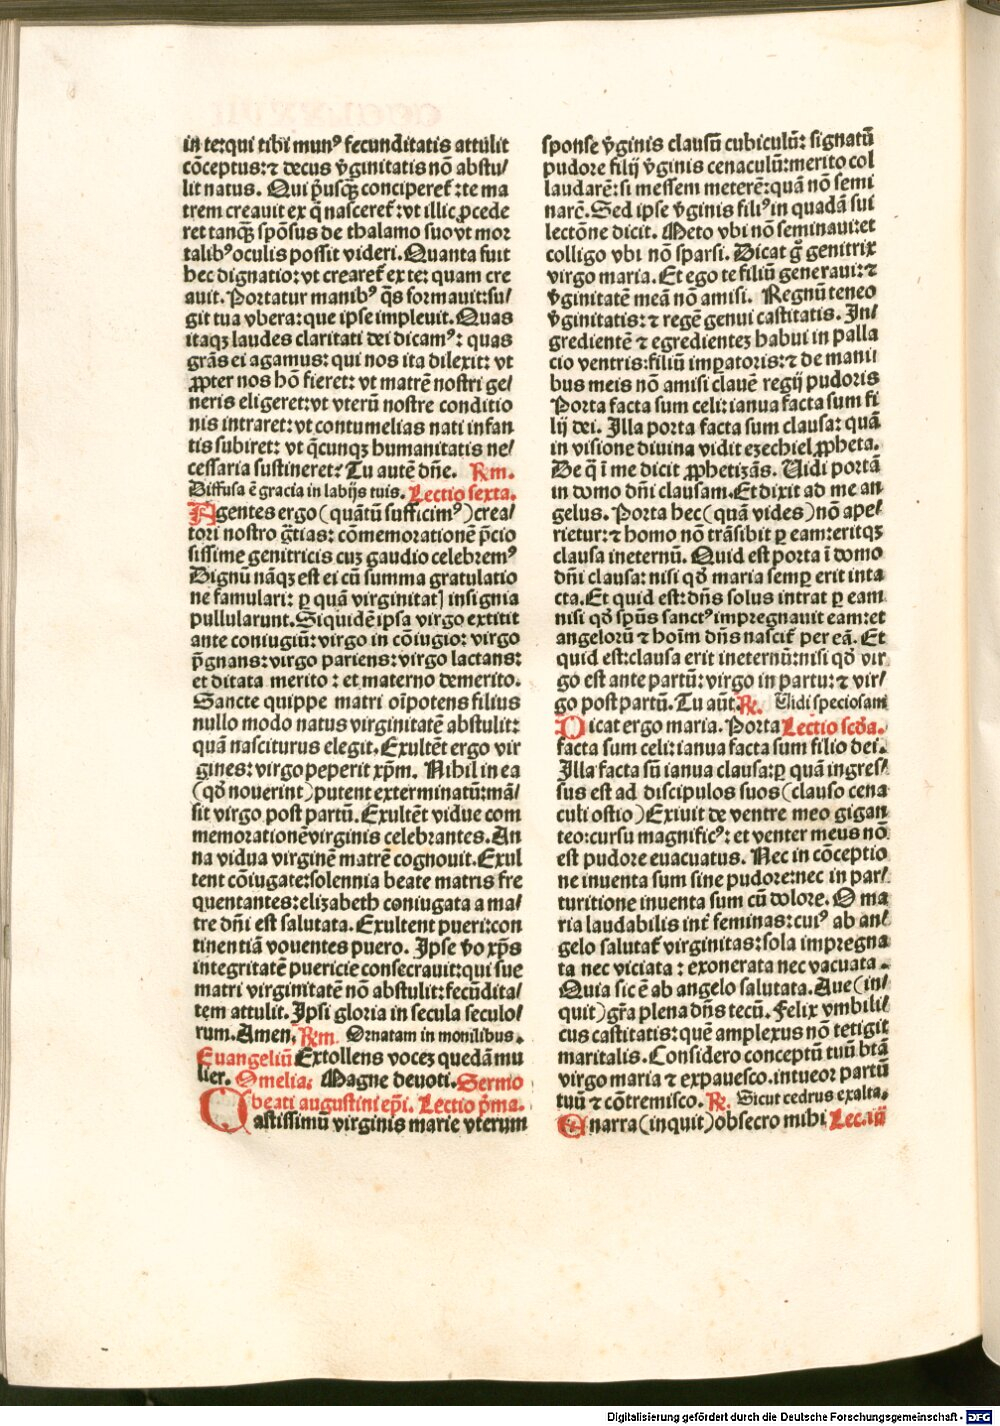 in te: qui tibi munꝰ fecunditatis attulit
cōceptus: ⁊ decus ṽginitatis nō abstu/
lit natus. Qui p̃usqꝫ conciperet᷑: te ma
trem creauit ex q̃ nasceret᷑: vt illic ꝓcede
ret tanqꝫ spōsus de thalamo suo vt mor
talibꝰ oculis possit videri. Quanta fuit
hec dignatio: vt crearet᷑ ex te: quam cre
auit. Portatur manibꝰ q̃s formauit: su/
git tua vbera: que ipse impleuit. Quas
itaqꝫ laudes claritati dei dicamꝰ: quas
grãs ei agamus: qui nos ita dilexit: vt
ꝓpter nos hō fieret: vt matrē nostri ge/
neris eligeret: vt vterū nostre conditio
nis intraret: vt contumelias nati infan
tis subiret: vt q̃cunqꝫ humanitatis ne/
cessaria sustineret? Tu autē dñe. Rm.
Diffusa ē gracia in labijs tuis. Lectio sexta.
Agentes ergo (quātū sufficimꝰ) crea/
tori nostro g̃tias: cōmemorationē p̃cio
sissime genitricis cuꝫ gaudio celebremꝰ
Dignū nāqꝫ est ei cū summa gratulatio
ne famulari: ꝑ quā virginitatꝭ insignia
pullularunt. Siquidē ipsa virgo extitit
ante coniugiū: virgo in cōiugio: virgo
p̃gnans: virgo pariens: virgo lactans:
et ditata merito: et materno demerito.
Sancte quippe matri oĩpotens filius
nullo modo natus virginitatē abstulit:
quā nasciturus elegit. Exultēt ergo vir
gines: virgo peperit xp̃m. Nihil in ea
(qd̕ nouerint) putent exterminatū: mā/
sit virgo post partū. Exultēt vidue com
memorationē virginis celebrantes. An
na vidua virginē matrē cognouit. Exul
tent cōiugate: solennia beate matris fre
quentantes: elizabeth coniugata a ma/
tre dñi est salutata. Exultent pueri: con
tinentiā vouentes puero. Ipse ṽo xp̃s
integritatē puericie consecrauit: qui sue
matri virginitatē nō abstulit: fecūdita/
tem attulit. Ipsi gloria in secula seculo/
rum. Amen. Rm. Ornatam in monilibus.
Euangeliū Extollens voceꝫ quedā mu
lier. Omelia: Magne deuoti. Sermo
beati augustini ep̃i. Lectio p̃ma.
Castissimū virginis marie vterum
sponse ṽginis clausū cubiculū: signatū
pudore filij ṽginis cenaculū: merito col
laudarē: si messem meterē: quā nō semi
narē. Sed ipse ṽginis filiꝰ in quadā sui
lectōne dicit. Meto vbi nō seminaui: et
colligo vbi nō sparsi. Dicat g̊ genitrix
virgo maria. Et ego te filiū generaui: ⁊
ṽginitatē meā nō amisi. Regnū teneo
ṽginitatis: ⁊ regē genui castitatis. In/
gredientē ⁊ egredienteꝫ habui in palla
cio ventris: filiū imꝑatoris: ⁊ de mani
bus meis nō amisi clauē regij pudoris
Porta facta sum celi: ianua facta sum fi
lij dei. Illa porta facta sum clausa: quā
in visione diuina vidit ezechiel ꝓpheta.
De q̃ ĩ me dicit ꝓphetizās. Uidi portā
in domo dñi clausam. Et dixit ad me an
gelus. Porta hec (quā vides) nō ape/
rietur: ⁊ homo nō trāsibit ꝑ eam: eritqꝫ
clausa ineternū. Quid est porta ĩ domo
dñi clausa: nisi qd̕ maria semꝑ erit inta
cta. Et quid est: dñs solus intrat ꝑ eam
nisi qd̕ sp̃us sanctꝰ impregnauit eam: et
angelorū ⁊ hoĩm dñs nascit᷑ per eā. Et
quid est: clausa erit ineternū: nisi qd̕ vir
go est ante partū: virgo in partu: ⁊ vir/
go post partū. Tu aūt. R̷. Uidi speciosam
Dicat ergo maria. Porta Lectio scd̕a.
facta sum celi: ianua facta sum filio dei.
Illa facta sū ianua clausa: ꝑ quā ingres/
sus est ad discipulos suos (clauso cena
culi ostio) Exiuit de ventre meo gigan
teo: cursu magnificꝰ: et venter meus nō
est pudore euacuatus. Nec in cōceptio
ne inuenta sum sine pudore: nec in par/
turitione inuenta sum cū dolore. O ma
ria laudabilis int᷑ feminas: cuiꝰ ab an/
gelo salutat᷑ virginitas: sola impregna
ta nec viciata: exonerata nec vacuata.
Quia sic ē ab angelo salutata. Aue (in/
quit) gr̃a plena dñs tecū. Felix vmbili/
cus castitatis: quē amplexus nō tetigit
maritalis. Considero conceptū tuū btā
virgo maria ⁊ expauesco. intueor partū
tuū ⁊ cōtremisco. R̷. Sicut cedrus exalta.
Enarra (inquit) obsecro mihi Lec. iij
Digitalisierung gefördert durch die Deutsche Forschungsgemeinschaft - DFG